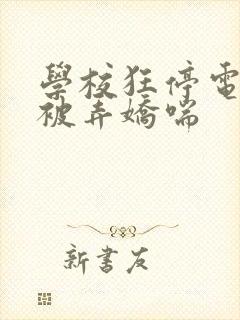 學校狂停電
被弄嬌喘
新書友